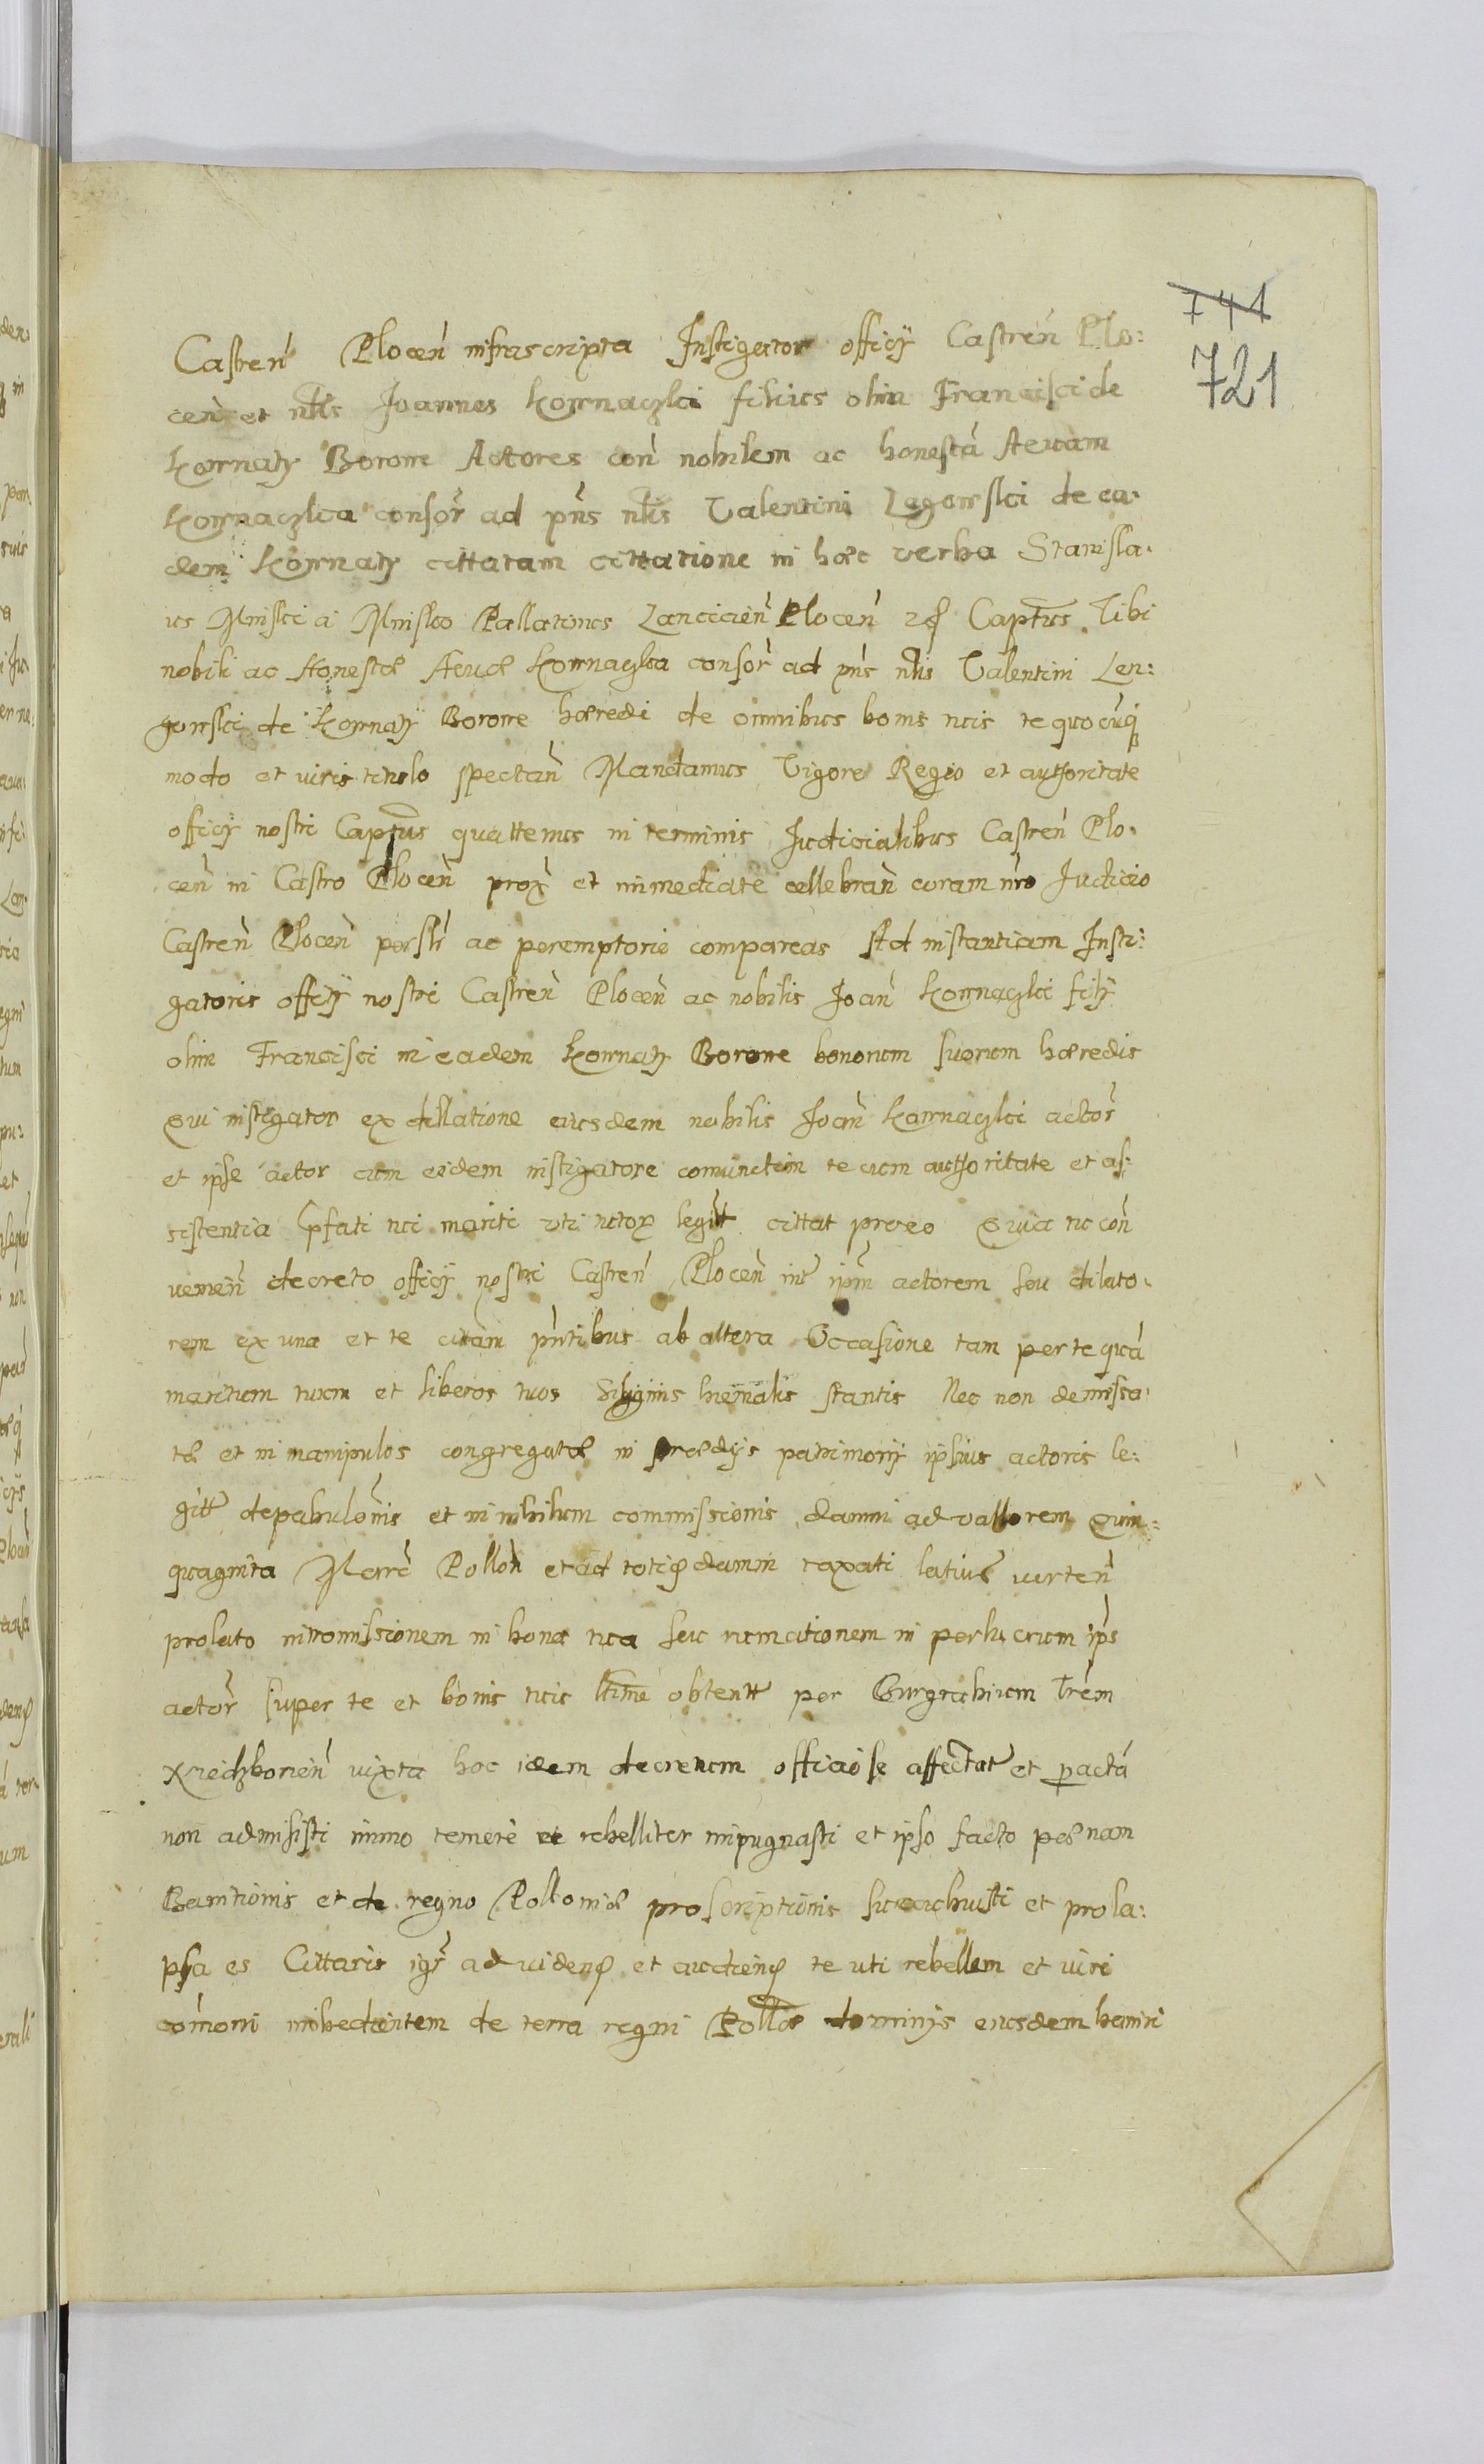 741
721
Castreń Płoceń infrascripta Instigator officÿ Castreń Plo:
ceń et nłis Joannes Kornaczki filius olim Francisci de
Kornaty Borowe Actores coń nobilem ac honestá Aevam
Kornaczka consoŕ ad pńs nłis Valentini Legowski de ea:
dem Kornaty cittatam cittatione in hæc verba Stanisla:
us Minski a Minsko Pallatinus Lancicień Ploceń Captus. Tibi
nobili ac Honestæ Aevæ Kornaczka consoŕ ad pńs nłis Valentini Len:
gowski de Kornaty Borowe hæredi de omnibus bonis tuis te quocuq
modo et iuris titulo spectań Mandamus Vigore Regio et authoritate
officÿ nostri Captus quattenus in terminis Judicialibus Castreń Plo:
ceń in Castro Ploceń prox et immediate cellebrań coram nro Judicio
Castreń Ploceń perslr ac peremptorie compareas Ad instantiam Insti:
gatoris officÿ nostri Castreń Ploceń ac nobilis Joań Kornaczki filÿ
olim Francisci in eadem Kornaty Borowe bonorum suorum hæredis
Qui instigator ex dellatione eiusdem nobilis Joań Kornaczki actoŕ
et ipse actor cum eidem instigatore coniunctim te cum authoritate et as:
sistentia pfati tui mariti uti tutoŕ legitt cittat pro eo Quia tu con
venień decreto officÿ nostri Castreń Ploceń int ipm actorem seu dilato:
rem ex una et te citam pntibus ab altera Occasione tam per te quá
maritum tuum et liberos tuos Siliginis hiemalis stantis Nec non demessa:
tæ et in manipulos congregatæ in prædÿs patrimonÿ ipsius actoris le:
gitt depabulonis et in nihilum commissionis damni ad vallorem Quin:
quaginta Marc Polloń et ad totid damni taxati latius verteń
prolato intromissionem in bona tua seu numitionem in perlucrum ips
actoŕ super te et bonis tuis ltime obtentt per Burgrabium Trem
iuxta hoc idem decretum officiose affectat et peractá
non admisisti immo temere et rebelliter impugnasti et ipso facto pœnam
Bannitionis et de regno Polloniæ proscriptionis succubuisti et prola:
psa es Cittaris igr ad videnð et audienð te uti rebellem et iuri
comoni inobedientem de terra regni Pollæ dominÿs eiusdem banniri